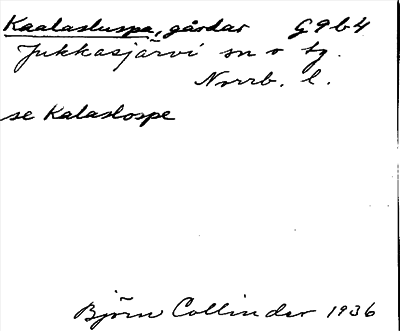 Kaalasluspa, gårdar G9b4
Jukkasjärvi sn o tg.
Norrb. l.
se Kalaslospe
Björn Collinder 1936